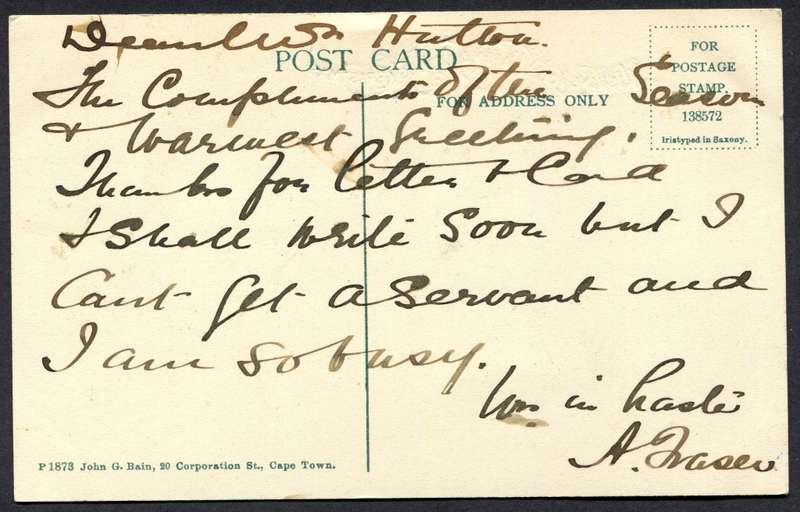 Dear Mrs Hutton.
POST CARD
The Compliments of the Season
FOR ADDRESS ONLY
FOR
POSTAGE
STAMP.
138572
Iristyped in Saxony.
& Warmest Greeting.
Thanks for letter & Card
I Shall write Soon but I
Cant get a Servant and
I am so busy.
in haste
A. Fraser
P 1873 John G. Bain, 20 Corporation St., Cape Town.